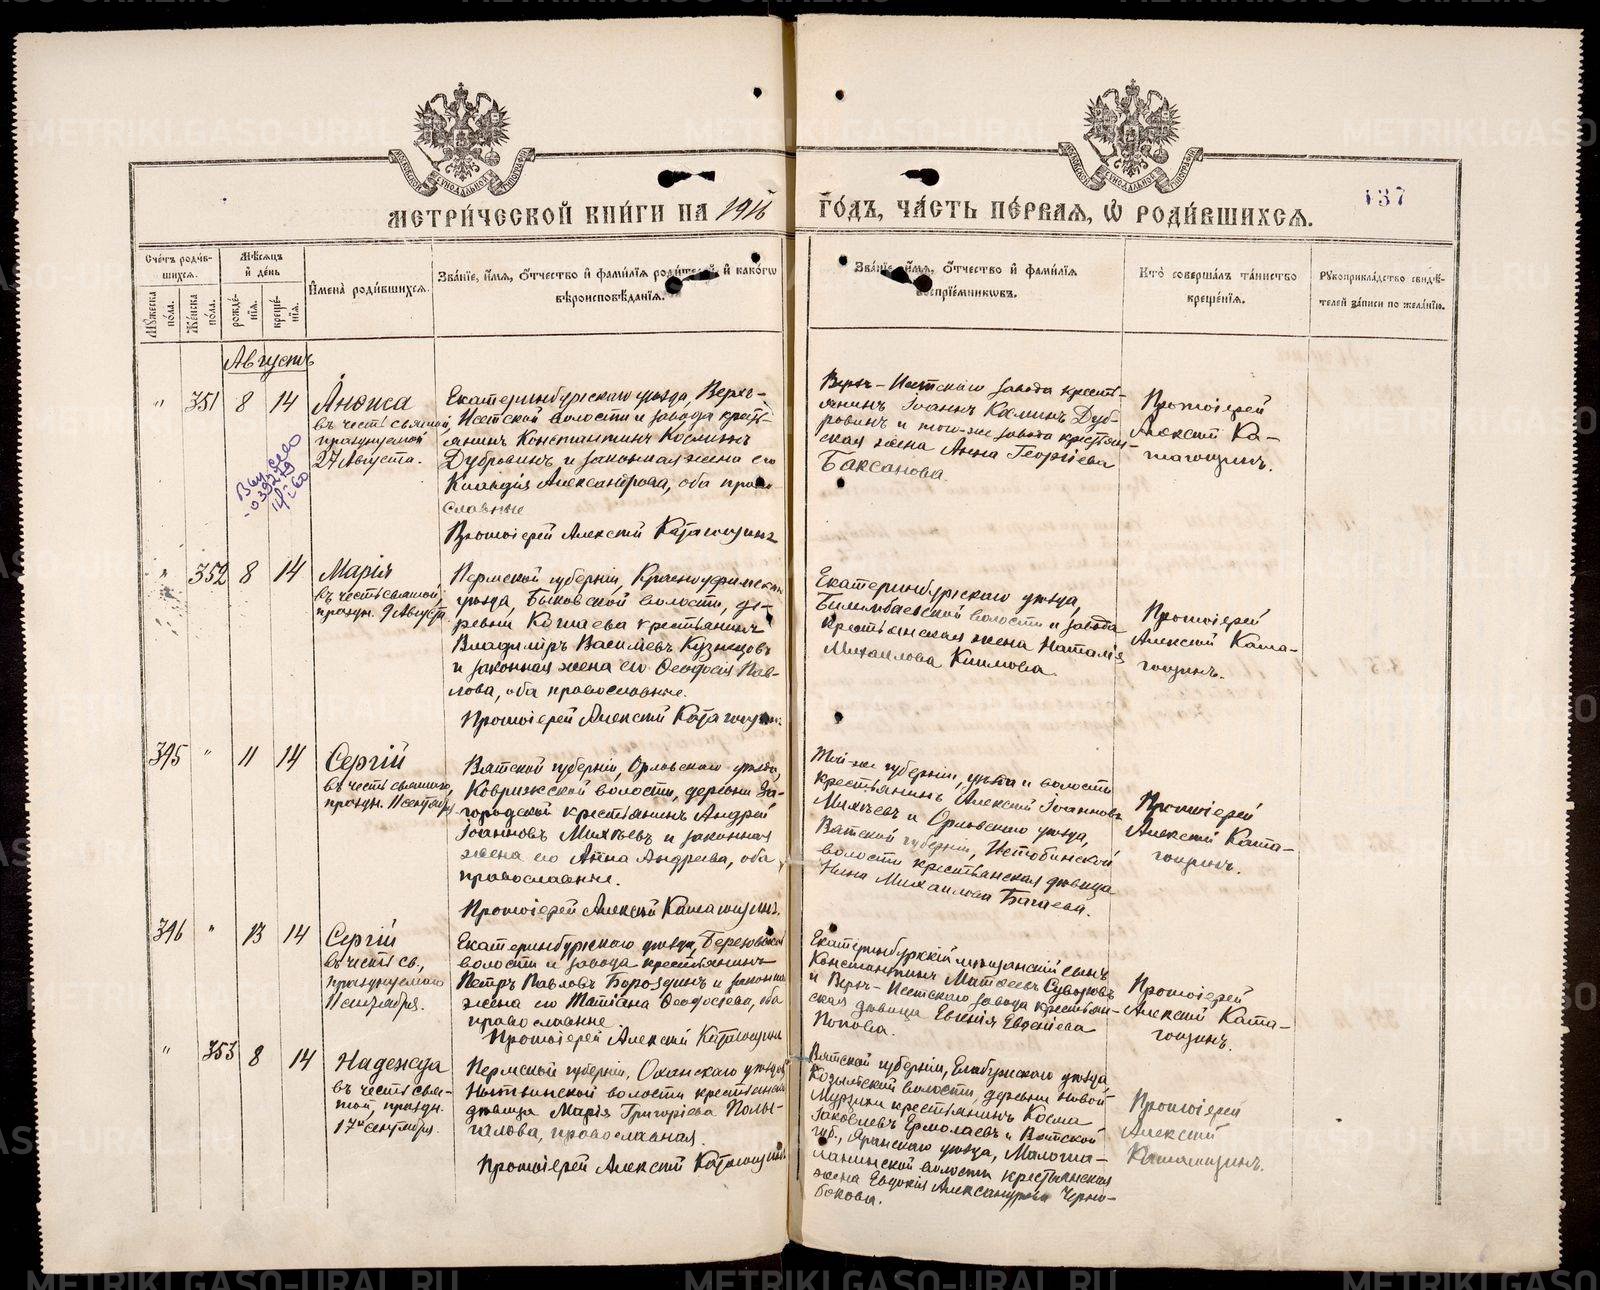 МЕТРИ́ЧЕСКОЙ КНИ́ГИ НА 1916
ГО́ДЪ, ЧА́СТЬ ПЕ́РВАЯ, Ѡ РОДИ́ВШИХСЯ.
137
Сче́тъ роди́в-
шихся.
Мѣ́сяцъ
и де́нь
Мꙋ́жеска
по́ла.
Же́нска
по́ла.
рожде́-
нїя.
креще́-
нїя.
Имена̀ роди́вшихся.
Зва́нїе, и́мя, о́тчество и фами́лїя роди́телей, и како́гѡ
вѣроисповѣ́данїя.
Зва́нїе, и́мя, о́тчество и фами́лїя
воспрїе́мникѡвъ.
Кто̀ соверша́лъ та́инство
креще́нїя.
Рꙋкоприкла́дство свидѣ́-
телей за́писи по жела́нїю.
Августъ
" 351 8 14
Анѳиса
въ честь святой,
празднуемой
27 Августа.
Екатеринбургскаго уѣзда, Верхъ-
Исетской волости и завода кресть-
янинъ Константинъ Косминъ
Дубровинъ и законная жена его
Клавдія Александрова, оба право-
славные
Протоіерей Алексій Катагощинъ
Верхъ-Исетскаго завода кресть-
янинъ Іоаннъ Косминъ Дуб-
ровинъ и того-же завода крестьян-
ская жена Анна Георгіева
Баксанова.
Протоіерей
Алексій Ка-
тагощинъ.
" 352 8 14
Марія
въ честь святой,
праздн. 9 Августа.
Пермской губерніи, Красноуфимскаго
уѣзда, Быковской волости, де-
ревни крестьянинъ
Владиміръ Васильевъ Кузнецовъ
и законная жена его Ѳеодосія Пав-
лова, оба православные.
Протоіерей Алексій Катагощинъ
Екатеринбургскаго уѣзда,
Билимбаевской волости и завода
крестьянская жена Наталія
Михаилова Климова.
Протоіерей
Алексій Ката-
гощинъ.
395 " 11 14
Сергій
въ честь святаго,
праздн. 11 сентября
Вятской губерніи, Орловскаго уѣзда,
Коврижской волости, деревни За-
городской крестьянинъ Андрей
Іоанновъ Михѣевъ и законная
жена его Анна Андреева, оба
православные.
Протоіерей Алексій Катагощинъ.
Той-же губерніи, уѣзда и волости
крестьянинъ Алексій Іоанновъ
Михѣевъ и Орловскаго уѣзда,
Вятской губерніи, Истобинской
волости крестьянская дѣвица
Нина Михаилова Багаева.
Протоіерей
Алексій Ката-
гощинъ.
396 " 13 14
Сергій
въ честь св.,
празднуемаго
11 сентября.
Екатеринбургскаго уѣзда, Березовской
волости и завода крестьянинъ
Петръ Павловъ Бороздинъ и законная
жена его Татіана Ѳеодосіева, оба
православные
Протоіерей Алексій Катагощинъ
Екатеринбургскій мѣщанскій сынъ
Константинъ Матѳеевъ Суворовъ
и Верхъ-Исетскаго завода крестьян-
ская дѣвица Евгенія Евсеніева
Попова.
Протоіерей
Алексій Ката-
гощинъ.
" 353 8 14
Надежда
въ честь свя-
той, праздн.
17го сентября.
Пермской губерніи, Оханскаго уѣзда,
Нытвинской волости крестьянская
дѣвица Марія Григоріева Полы-
галова, православная.
Протоіерей Алексій Катагощинъ
Вятской губерніи, Елабужскаго уѣзда
Козыльской волости, деревни Новой-
Мурзихи крестьянинъ Косма
Іаковлевъ Ермолаевъ и Вятской
губ., Яранскаго уѣзда,
волости крестьянская
жена Евдокія Александрова Черно-
бокова.
Протоіерей
Алексій
Катагощинъ.
METRIKI.GASO-URAL.RU